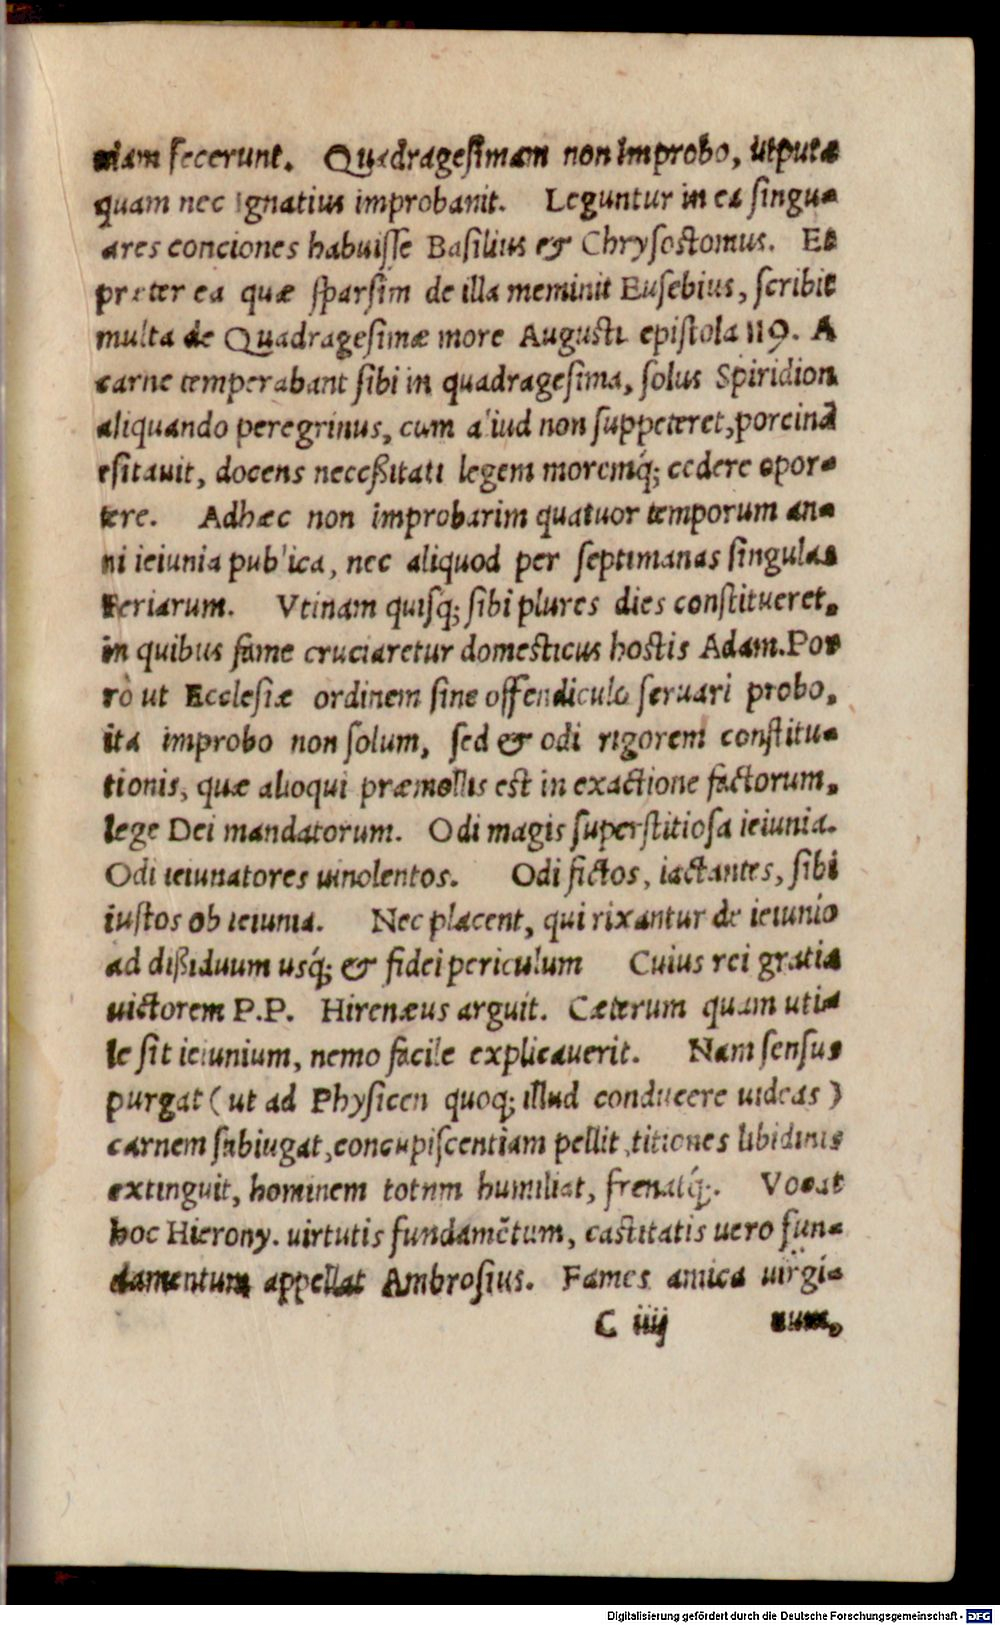 niam fecerunt. Quadragesimam non improbo, utputa
quam nec Ignatius improbauit. Leguntur in ea singu-
ares conciones habuisse Basilius & Chrysostomus. Et
preter ea quæ sparsim de illa meminit Eusebius, scribit
multa de Quadragesimæ more Augusti epistola 119. A
carne temperabant sibi in quadragesima, solus Spiridion
aliquando peregrinus, cum aliud non suppeteret, porcinã
esitauit, docens neceßitati legem moremq́; cedere opor-
tere. Adhæc non improbarim quatuor temporum an-
ni ieiunia publica, nec aliquod per septimanas singulas
Feriarum. Vtinam quisq; sibi plures dies constitueret,
in quibus fame cruciaretur domesticus hostis Adam. Por
rò ut Ecclesiæ ordinem sine offendiculo seruari probo,
ita improbo non solum, sed & odi rigorem constitu-
tionis, quæ alioqui præmollis est in exactione factorum,
lege Dei mandatorum. Odi magis superstitiosa ieiunia.
Odi ieiunatores uinolentos. Odi fictos, iactantes, sibi
iustos ob ieiunia. Nec placent, qui rixantur de ieiunio
ad dißiduum usq́; & fidei periculum Cuius rei gratia
uictorem P.P. Hirenæus arguit. Cæterum quam uti-
le sit ieiunium, nemo facile explicauerit. Nam sensus
purgat (ut ad Physicen quoq; illud conducere uideas)
carnem subiugat, concupiscentiam pellit, titiones libidinis
extinguit, hominem totum humiliat, frenatq́;. Vocat
hoc Hierony. uirtutis fundamẽtum, castitatis uero fun-
damentum appellat Ambrosius. Fames amica uirgi-
C iiij num,
Digitalisierung gefördert durch die Deutsche Forschungsgemeinschaft - DFG